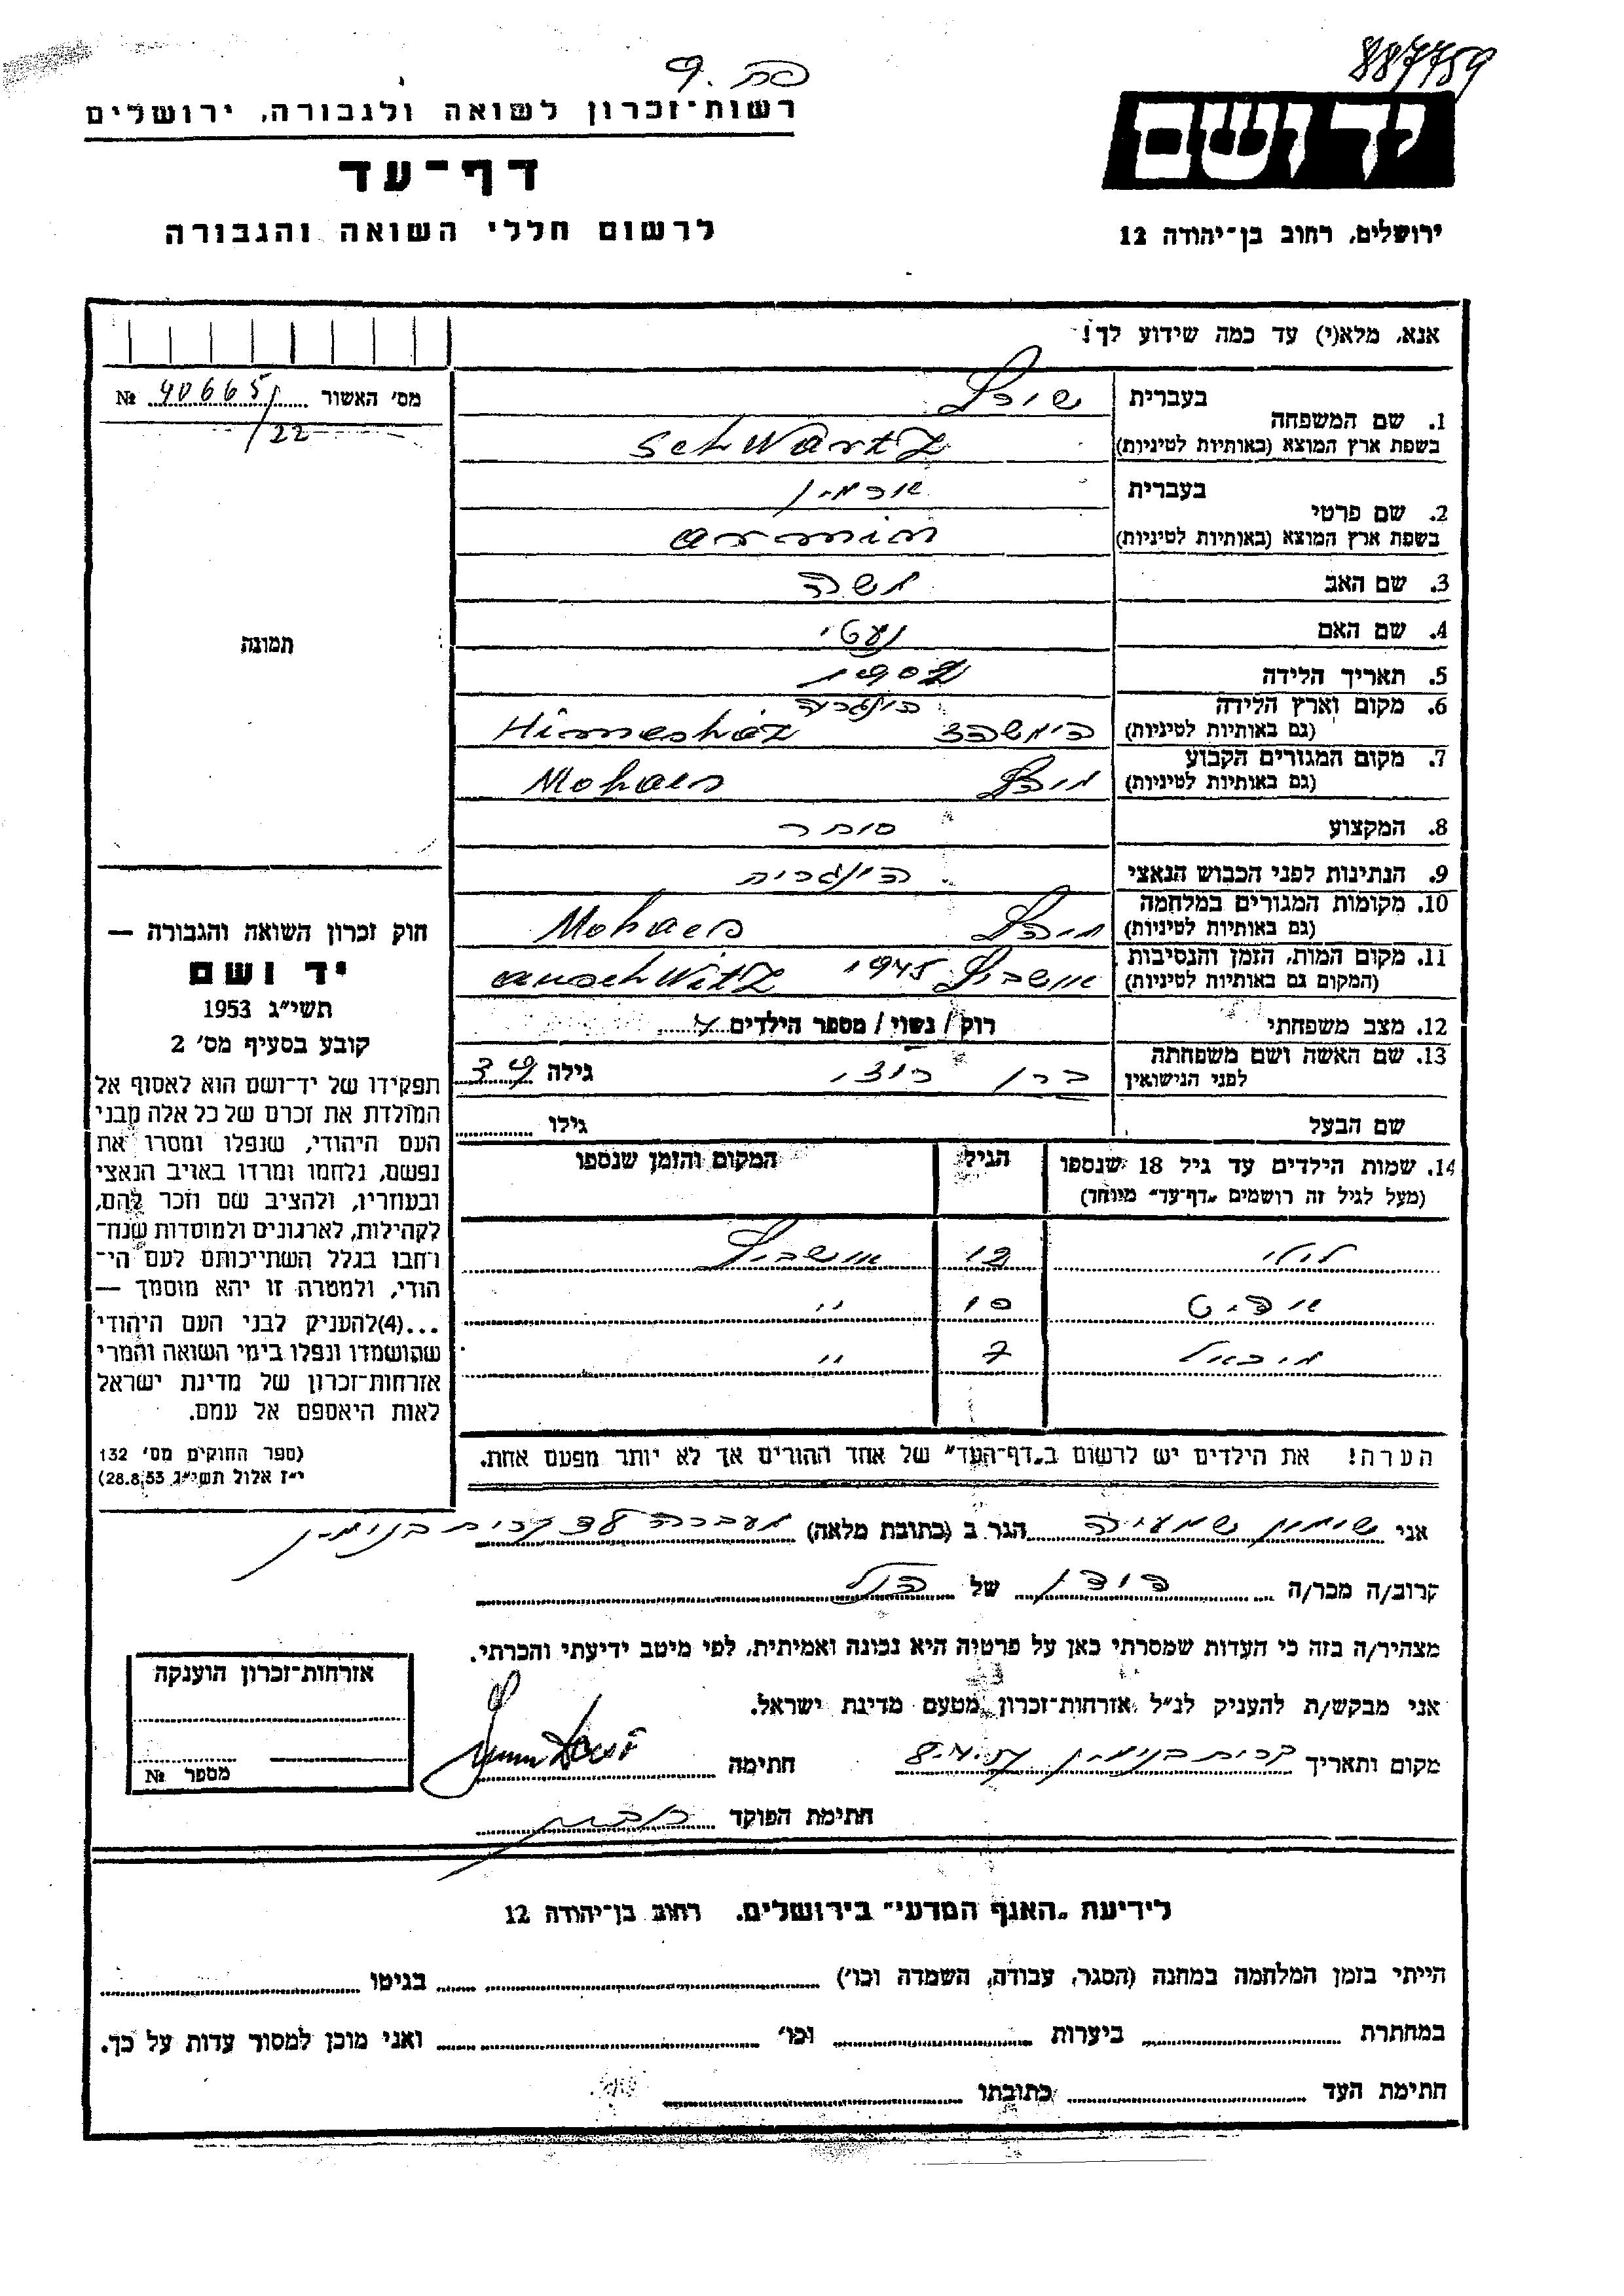 887759
רשות־זכרון לשואה ולגבורה, ירושלים
דף־עד
לרשום חללי השואה והגבורה
יד ושם
ירושלים, רחוב בן־יהודה 12
אנא, מלא(י) עד כמה שידוע לך!
מס' האשור № 406651
/22
תמונה
1. שם המשפחה
בעברית
בשפת ארץ המוצא (באותיות לטיניות) Schwartz
2. שם פרטי
בעברית ארמין
בשפת ארץ המוצא (באותיות לטיניות) armin
3. שם האב משה
4. שם האם
5. תאריך הלידה 1902
6. מקום וארץ הלידה הונגריה
(גם באותיות לטיניות) הימשהז Himesház
7. מקום המגורים הקבוע
(גם באותיות לטיניות) Mohacs
8. המקצוע סוחר
9. הנתינות לפני הכבוש הנאצי הונגרית
10. מקומות המגורים במלחמה
(גם באותיות לטיניות) Mohacs
11. מקום המות, הזמן והנסיבות
(המקום גם באותיות לטיניות) אושביץ 1945 auschwitz
12. מצב משפחתי רוק / נשוי / מספר הילדים 4
13. שם האשה ושם משפחתה
לפני הנישואין גילה
שם הבעל גילו
14. שמות הילדים עד גיל 18 שנספו הגיל המקום והזמן שנספו
(מעל לגיל זה רושמים „דף־עד" מיוחד)
לילי 12 אושביץ
10 "
מיכאל 7 "
הערה! את הילדים יש לרשום ב„דף־העד" של אחד ההורים אך לא יותר מפעם אחת.
חוק זכרון השואה והגבורה —
יד ושם
תשי"ג 1953
קובע בסעיף מס' 2
תפקידו של יד־ושם הוא לאסוף אל
המולדת את זכרם של כל אלה מבני
העם היהודי, שנפלו ומסרו את
נפשם, נלחמו ומרדו באויב הנאצי
ובעוזריו, ולהציב שם וזכר להם,
לקהילות, לארגונים ולמוסדות שנח־
רחבו בגלל השתייכותם לעם הי־
הודי, ולמטרה זו יהא מוסמך —
...(4)להעניק לבני העם היהודי
שהושמדו ונפלו בימי השואה והמרי
אזרחות־זכרון של מדינת ישראל
לאות היאספם אל עמם.
(ספר החוקים מס' 132
י"ז אלול תשי"ג 28.8.53)
אני שמעיה הגר ב (כתובת מלאה) מעברה קרית בנימין
קרוב/ה מכר/ה של
מצהיר/ה בזה כי העדות שמסרתי כאן על פרטיה היא נכונה ואמיתית, לפי מיטב ידיעתי והכרתי.
אני מבקש/ת להעניק לנ"ל אזרחות־זכרון מטעם מדינת ישראל.
מקום ותאריך קרית בנימין חתימה
חתימת הפוקד
אזרחות־זכרון הוענקה
מספר №
לידיעת „האגף המדעי" בירושלים. רחוב בן־יהודה 12
הייתי בזמן המלחמה במחנה (הסגר, עבודה, השמדה וכו') בגיטו
במחתרת ביערות וכו' ואני מוכן למסור עדות על כך.
חתימת העד כתובתו